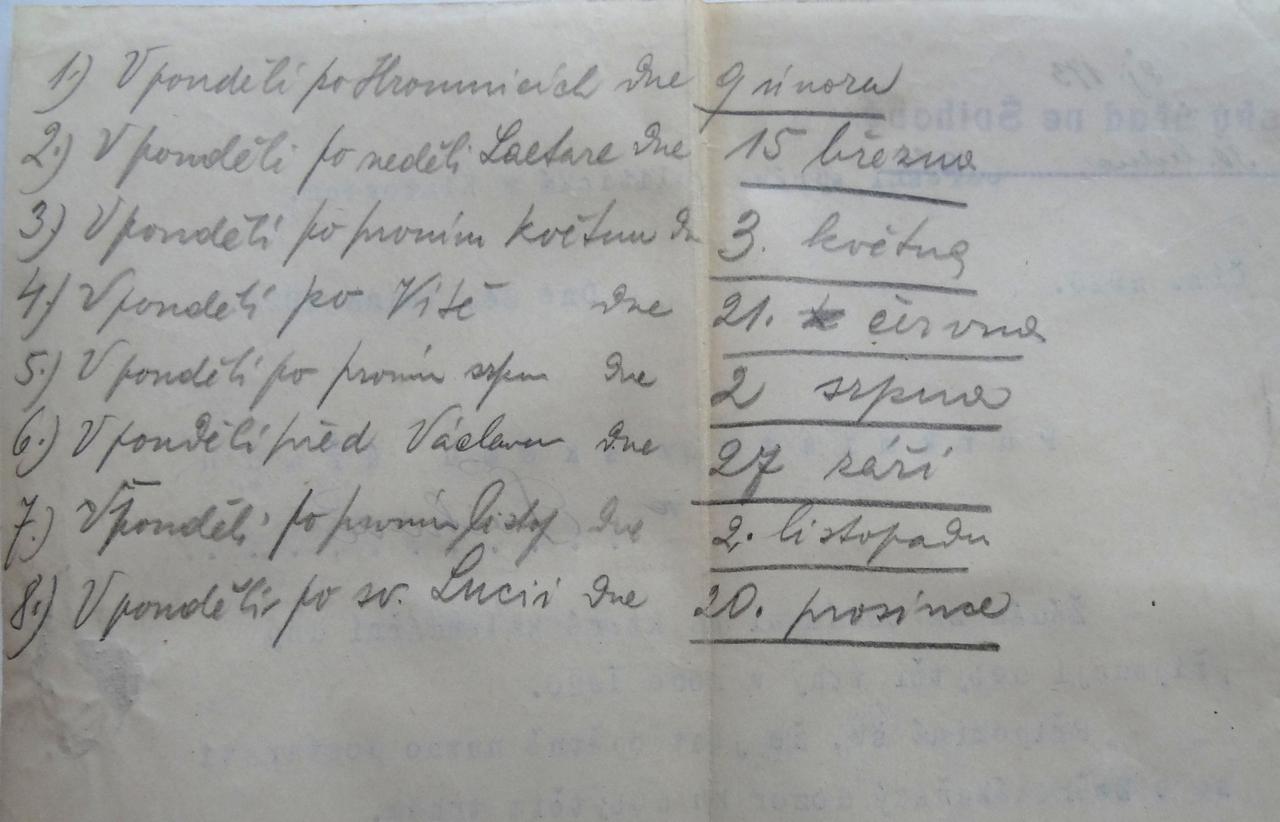 1.) V pondělí po Hromnicích dne 9 února
2.) V pondělí po neděli Laetare dne 15 března
3.) V pondělí po prvním květnu dn 3. května
4.) V pondělí po Vítě dne 21. června
5.) V pondělí po prvním srpnu dne 2 srpna
6.) V pondělí před Václavem dne 27 září
7.) V pondělí po prvním listop dne 2. listopadu
8.) V pondělí po sv. Lucii dne 20. prosince